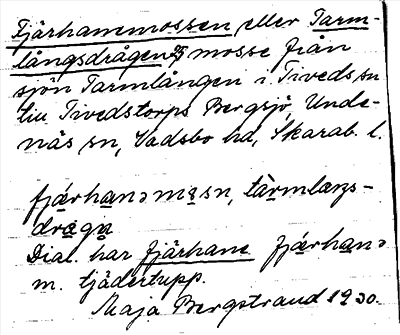 Fjärhanemossen eller Tarm-
långsdrågen, mosse från
sjön Tarmlången i Tiveds sn
till Tivedstorps Bergsjö, Unde-
näs sn, Vadsbo hd, Skarab. l.
fjærhanəmɔsn, tàrmlaŋs-
drɑgɑ
Dial. har fjärhane fjǽrhanə
m. tjädertupp.
Maja Bergstrand 1930.